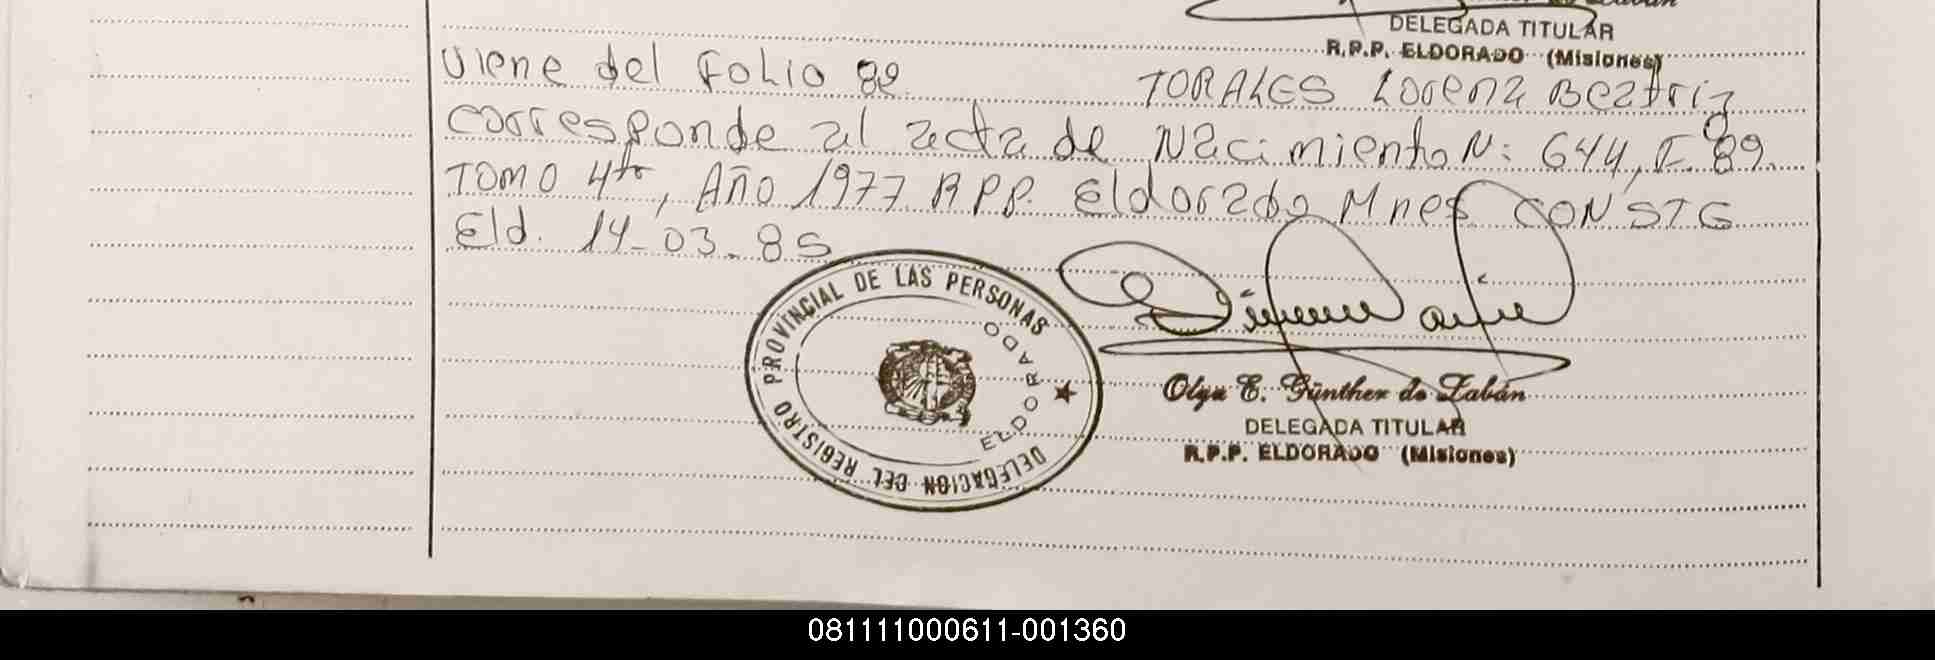 DELEGADA TITULAR
R.P.P. ELDORADO (Misiones)
Viene del Folio 88 TORALES Lorena Beatriz
corresponde al acta de Nacimiento N: 644, F° 89.
TOMO 4to, Año 1977 R.P.P. Eldorado Mnes CONSTE
Eld. 14-03-85
DELEGACION DEL REGISTRO PROVINCIAL DE LAS PERSONAS
ELDORADO
Olga E. Günther de Zabán
DELEGADA TITULAR
R.P.P. ELDORADO (Misiones)
081111000611-001360